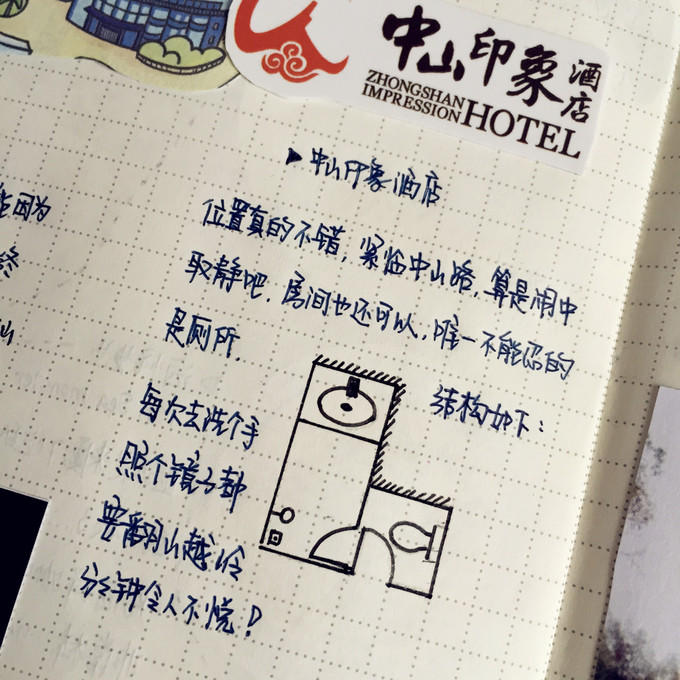 中山印象酒店
ZHONGSHAN
IMPRESSION HOTEL
▶中山印象酒店
位置真的不错，紧临中山路，算是闹中
取静吧．房间也还可以，唯一不能忍的
是厕所．
结构如下：
每次去洗个手
照个镜子都
要翻山越岭
分分钟令人不悦！
因为
终